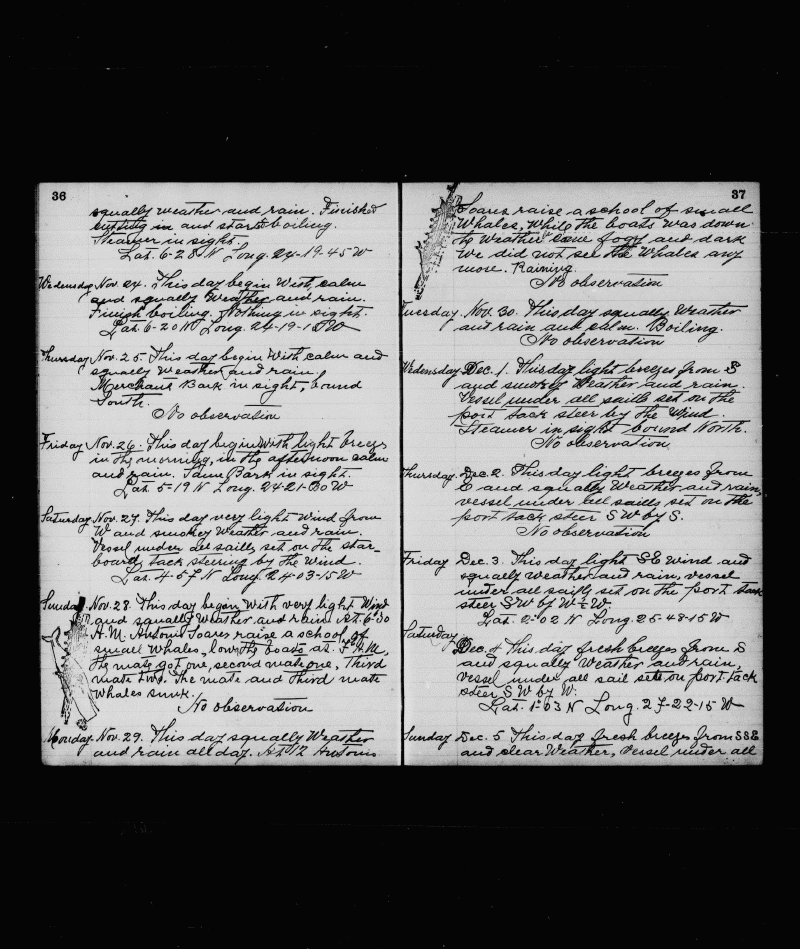 36
squally weather and rain. Finished
cutting in and start boiling.
Steamer in sight.
Lat. 6-28 N Long. 24-19-45 W
Wednesday Nov 24. This day begin With calm
and squally Weather and rain.
Finish boiling. Nothing in sight.
Lat. 6-20 N Long. 24-19-15 W
Thursday Nov. 25. This day begin With calm and
squally weather and rain.
Merchant Bark in sight, bound
South.
No observation
Friday Nov. 26. This day begin With light breeze
in the morning, in the afternoon calm
and rain. Same Bark in sight.
Lat. 5-19 N Long. 24-21-30 W
Saturday Nov. 27. This day very light Wind from
W and smokey weather and rain.
Vessel under all sails set on the star-
board tack steering by the Wind.
Lat. 4-57 N Long. 24-03-15 W
Sunday Nov. 28. This day begin With very light Wind
and squally Weather and rain. At 6-30
A.M. Antoni Soares raise a school of
small Whales, low the boats at 7 A.M,
the mate got one, second mate one, Third
mate two. The mate and third mate
Whales sunk.
No observation
Monday Nov. 29. This day squally Weather
and rain all day. At 12 Antoni
37
Soares raise a school of small
Whales, While the boats was down
the Weather come fogy and dark
We did not see the Whales any
more. Raining.
No observation
Tuesday Nov. 30. This day squally Weather
and rain and calm. Boiling.
No observation
Wednesday Dec. 1. This day light breezes from S
and smokey Weather and rain.
Vessel under all sails set on the
port tack steer by the Wind.
Steamer in sight bound North.
No observation
Thursday. Dec. 2. This day light breezes from
E and squally Weather and rain,
vessel under all sails set on the
port tack steer S W by S.
No observation
Friday Dec. 3. This day light SE Wind and
squally weather and rain, vessel
under all sails set on the port tack
steer SW by W ½ W.
Lat. 2-02 N Long. 25-48-15 W
Saturday
Dec. 4 This day fresh breezes from S
and squally Weather and rain,
vessel under all sail sets on port tack
steer S W by W.
Lat. 1-03 N Long. 27-22-15 W
Sunday Dec. 5 This day fresh breezes from SSE
and clear Weather, Vessel under all